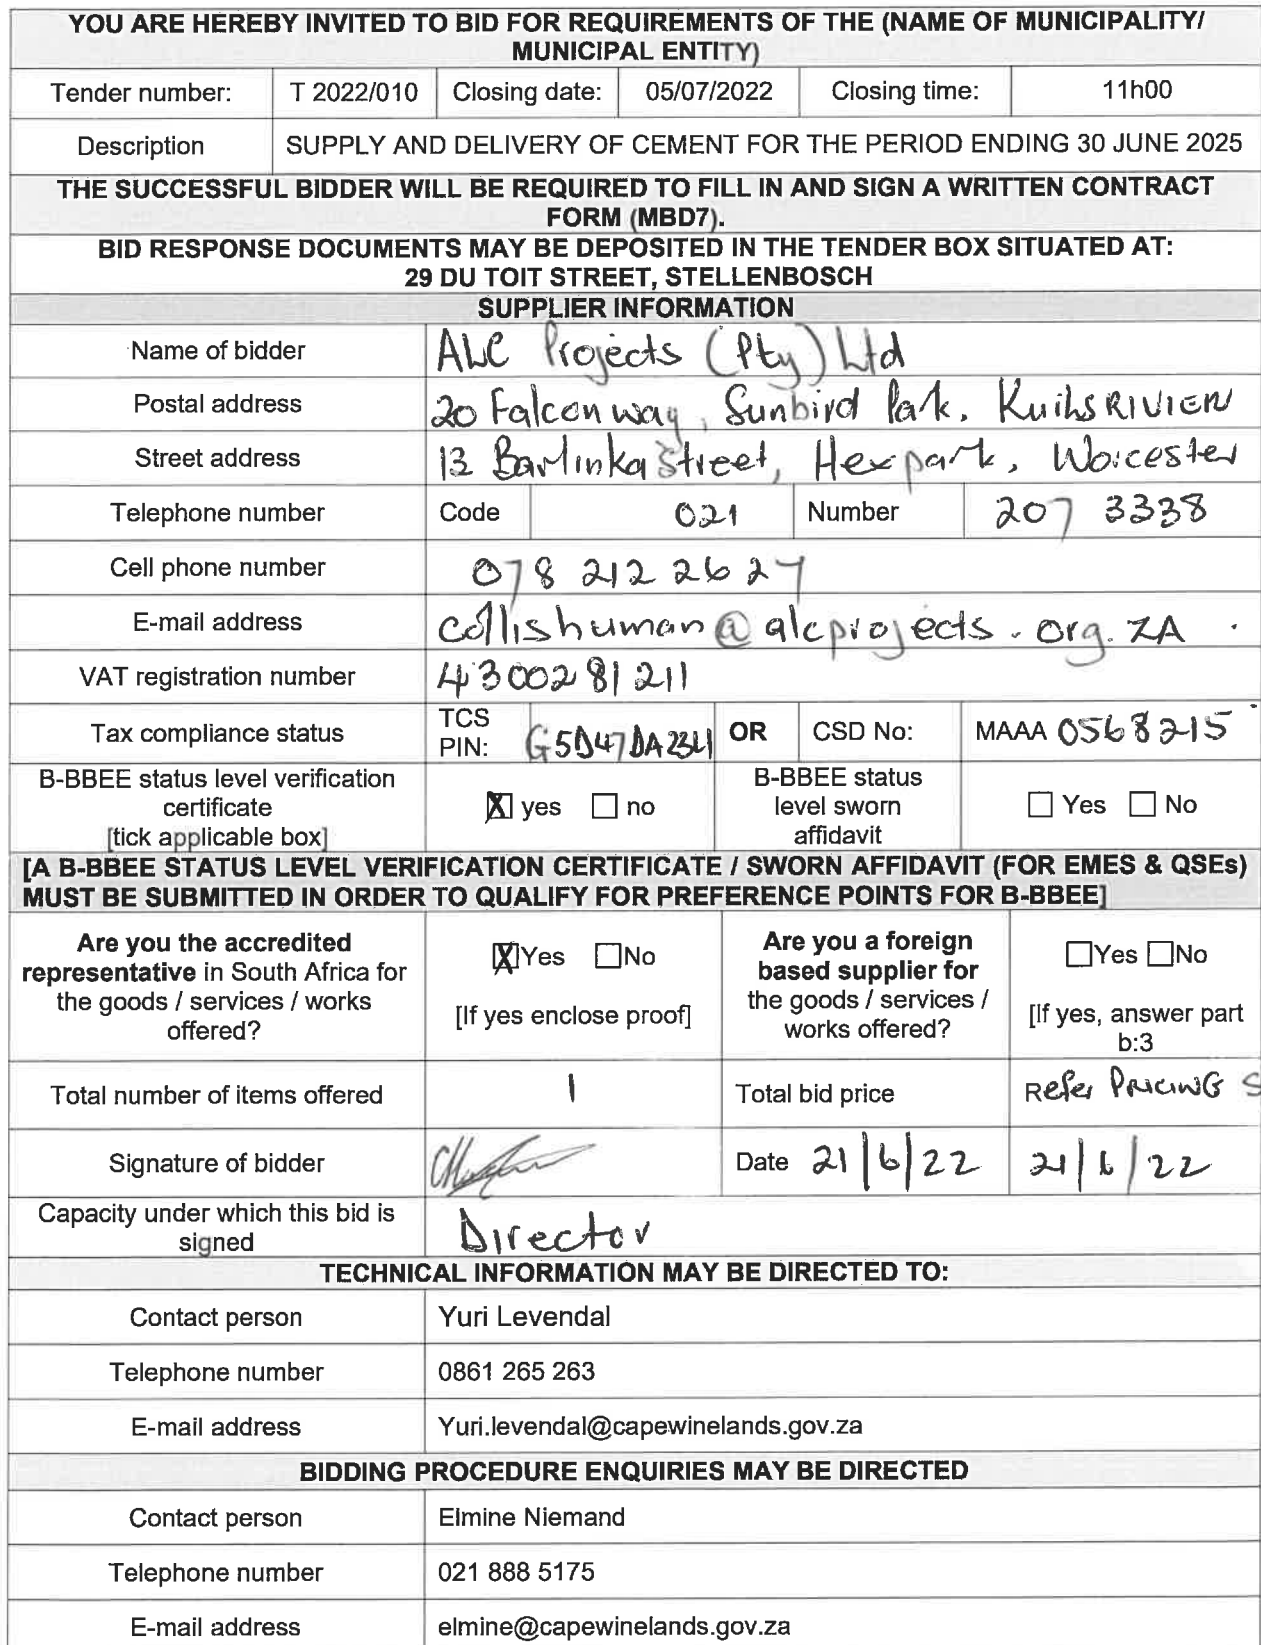 YOU ARE HEREBY INVITED TO BID FOR REQUIREMENTS OF THE (NAME OF MUNICIPALITY/
MUNICIPAL ENTITY)
Tender number: T 2022/010 Closing date: 05/07/2022 Closing time: 11h00
Description SUPPLY AND DELIVERY OF CEMENT FOR THE PERIOD ENDING 30 JUNE 2025
THE SUCCESSFUL BIDDER WILL BE REQUIRED TO FILL IN AND SIGN A WRITTEN CONTRACT
FORM (MBD7).
BID RESPONSE DOCUMENTS MAY BE DEPOSITED IN THE TENDER BOX SITUATED AT:
29 DU TOIT STREET, STELLENBOSCH
SUPPLIER INFORMATION
Name of bidder ALC Projects (Pty) Ltd
Postal address 20 Falcon way, Sunbird Park, Kuihs RIVIER
Street address 13 Barlinka Street, Hexpark, Worcester
Telephone number Code 021 Number 207 3338
Cell phone number 078 212 2627
E-mail address collishuman@alcprojects.org.ZA
VAT registration number 4300281211
Tax compliance status TCS PIN: G5D47DA234 OR CSD No: MAAA 0568215
B-BBEE status level verification
certificate
[tick applicable box]
X yes no
B-BBEE status
level sworn
affidavit
Yes No
[A B-BBEE STATUS LEVEL VERIFICATION CERTIFICATE / SWORN AFFIDAVIT (FOR EMES & QSEs)
MUST BE SUBMITTED IN ORDER TO QUALIFY FOR PREFERENCE POINTS FOR B-BBEE]
Are you the accredited
representative in South Africa for
the goods / services / works
offered?
X Yes No
[If yes enclose proof]
Are you a foreign
based supplier for
the goods / services /
works offered?
Yes No
[If yes, answer part
b:3
Total number of items offered 1 Total bid price Refer PRICING S
Signature of bidder Date 21/6/22 21/6/22
Capacity under which this bid is
signed
Director
TECHNICAL INFORMATION MAY BE DIRECTED TO:
Contact person Yuri Levendal
Telephone number 0861 265 263
E-mail address Yuri.levendal@capewinelands.gov.za
BIDDING PROCEDURE ENQUIRIES MAY BE DIRECTED
Contact person Elmine Niemand
Telephone number 021 888 5175
E-mail address elmine@capewinelands.gov.za